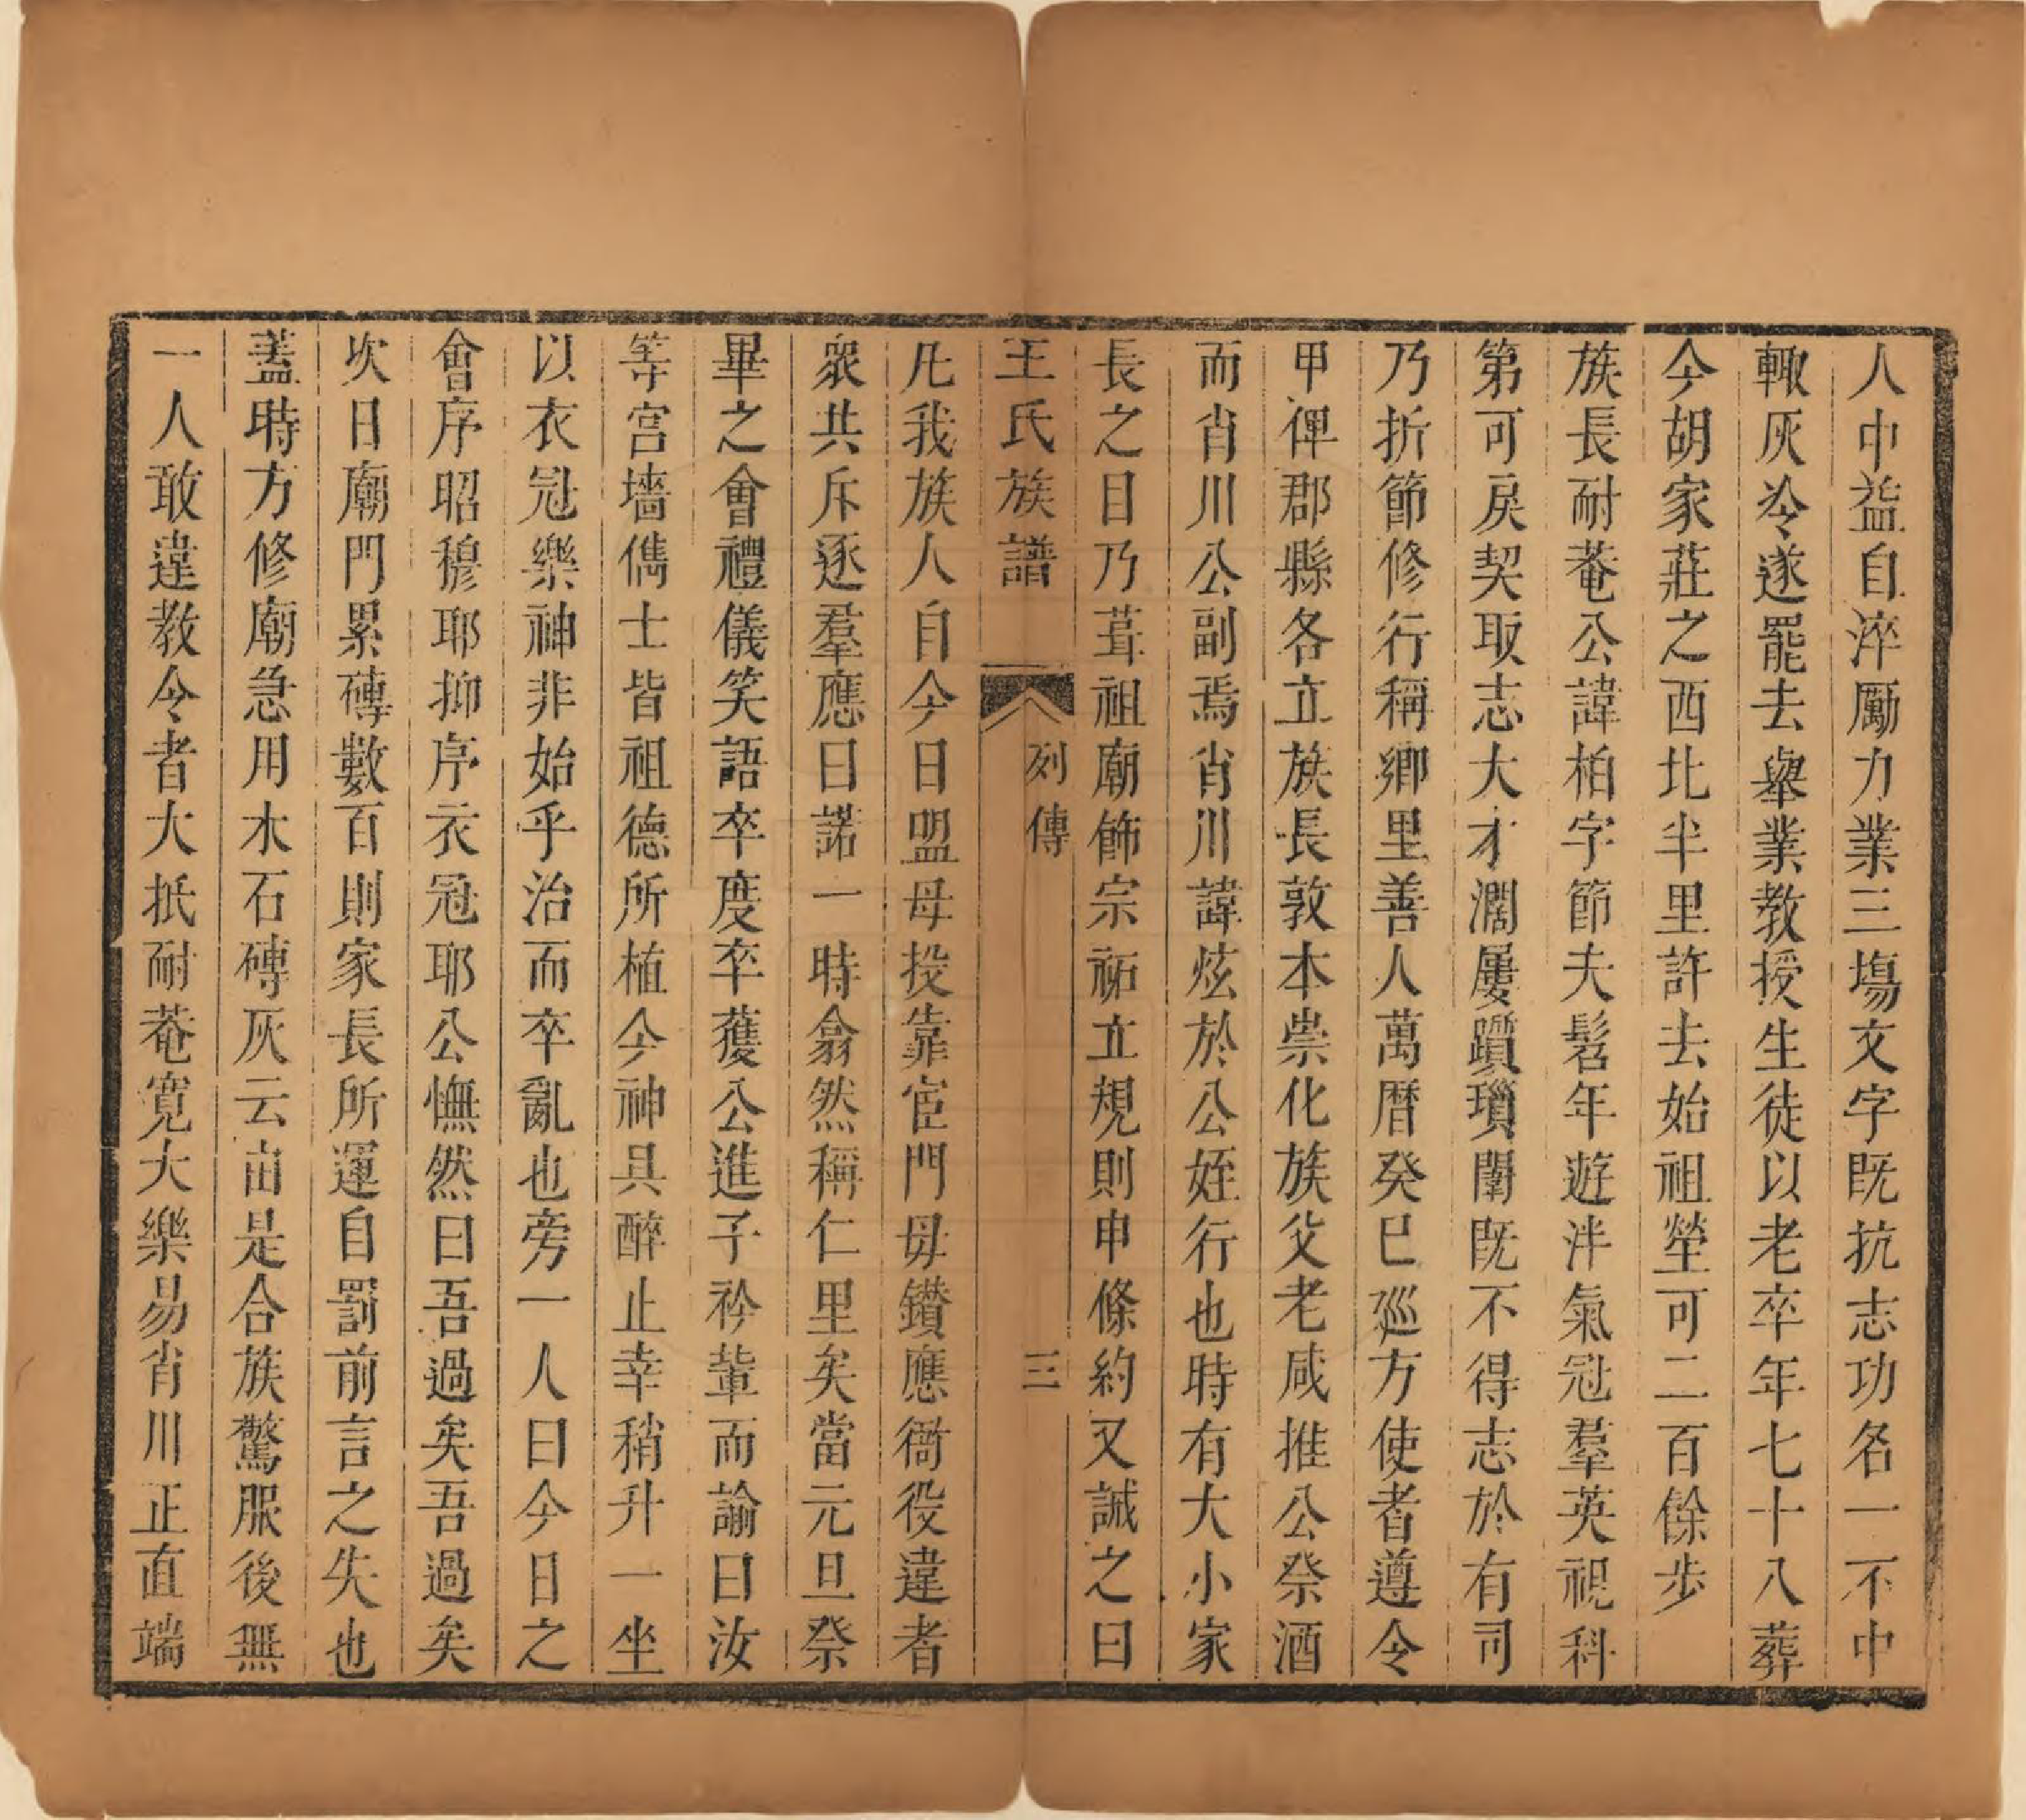 人中益自淬厲力業三塲文字既抗志功名一不中
輙灰冷遂罷去舉業教授生徒以老卒年七十八葬
今胡家莊之西北半里許去始祖塋可二百餘步
族長耐菴公諱柏字節夫髫年遊泮氣冠羣英視科
第可戾契取志大才濶屢躓瑣闈既不得志於有司
乃折節修行稱鄉里善人萬曆癸巳廵方使者遵令
甲俾郡縣各立族長敦本崇化族父老咸推公祭酒
而肖川公副焉肖川諱炫於公姪行也時有大小家
長之目乃葺祖廟飾宗祏立規則申條約又誡之曰
王氏族譜 列傳 三
凡我族人自今日盟毋投靠宦門毋鑽應衙役違者
衆共斥逐羣應曰諾一時翕然稱仁里矣當元旦祭
畢之會禮儀笑語卒度卒獲公進子衿輩而諭曰汝
等宮墻儁士皆祖德所植今神具醉止幸稍升一坐
以衣冠樂神非始乎治而卒亂也旁一人曰今日之
會序昭穆耶抑序衣冠耶公憮然曰吾過矣吾過矣
次日廟門累磚數百則家長所運自罰前言之失也
蓋時方修廟急用木石磚灰云由是合族驚服後無
一人敢違教令者大抵耐菴寬大樂易肖川正直端